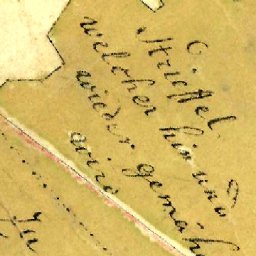 C
Strieffel
welcher hin und
wieder gemäh
wird
Zu